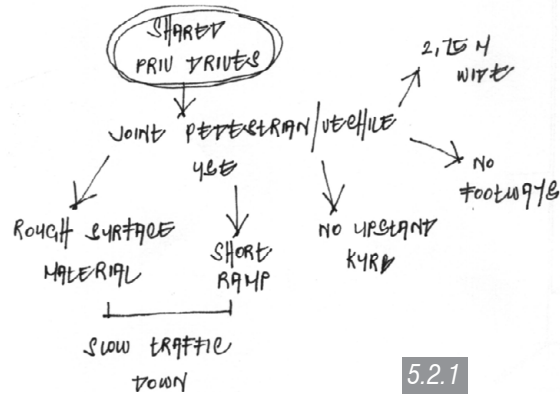 SHARED
PRIV DRIVES
2,75 M
WIDE
JOINT PEDESTRAN/VECHILE
USE
NO
FOOTWAYS
ROUGH SURFACE
MATERIAL
SHORT
RAMP
NO UPSTAND
KURB
SLOW TRAFFIC
DOWN
5.2.1